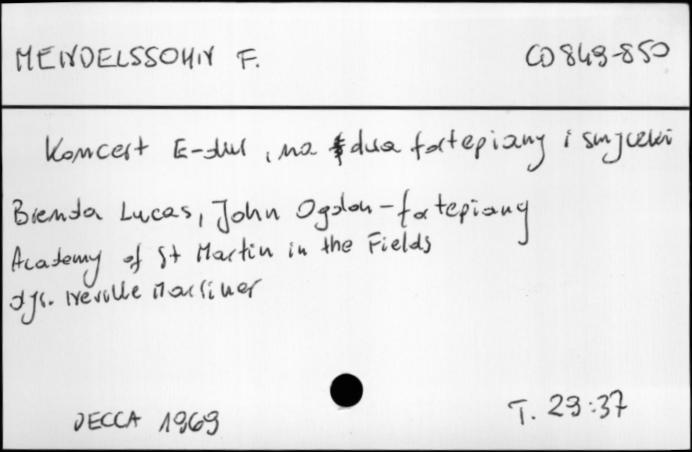 MENDELSSOHN F. CD 849-850
Koncert E-dur, na dwa fortepiany i smyczki
Brenda Lucas, John Ogdon - fortepiany
Academy of St Martin in the Fields
dyr. Neville Marriner
DECCA 1969 T. 29:37